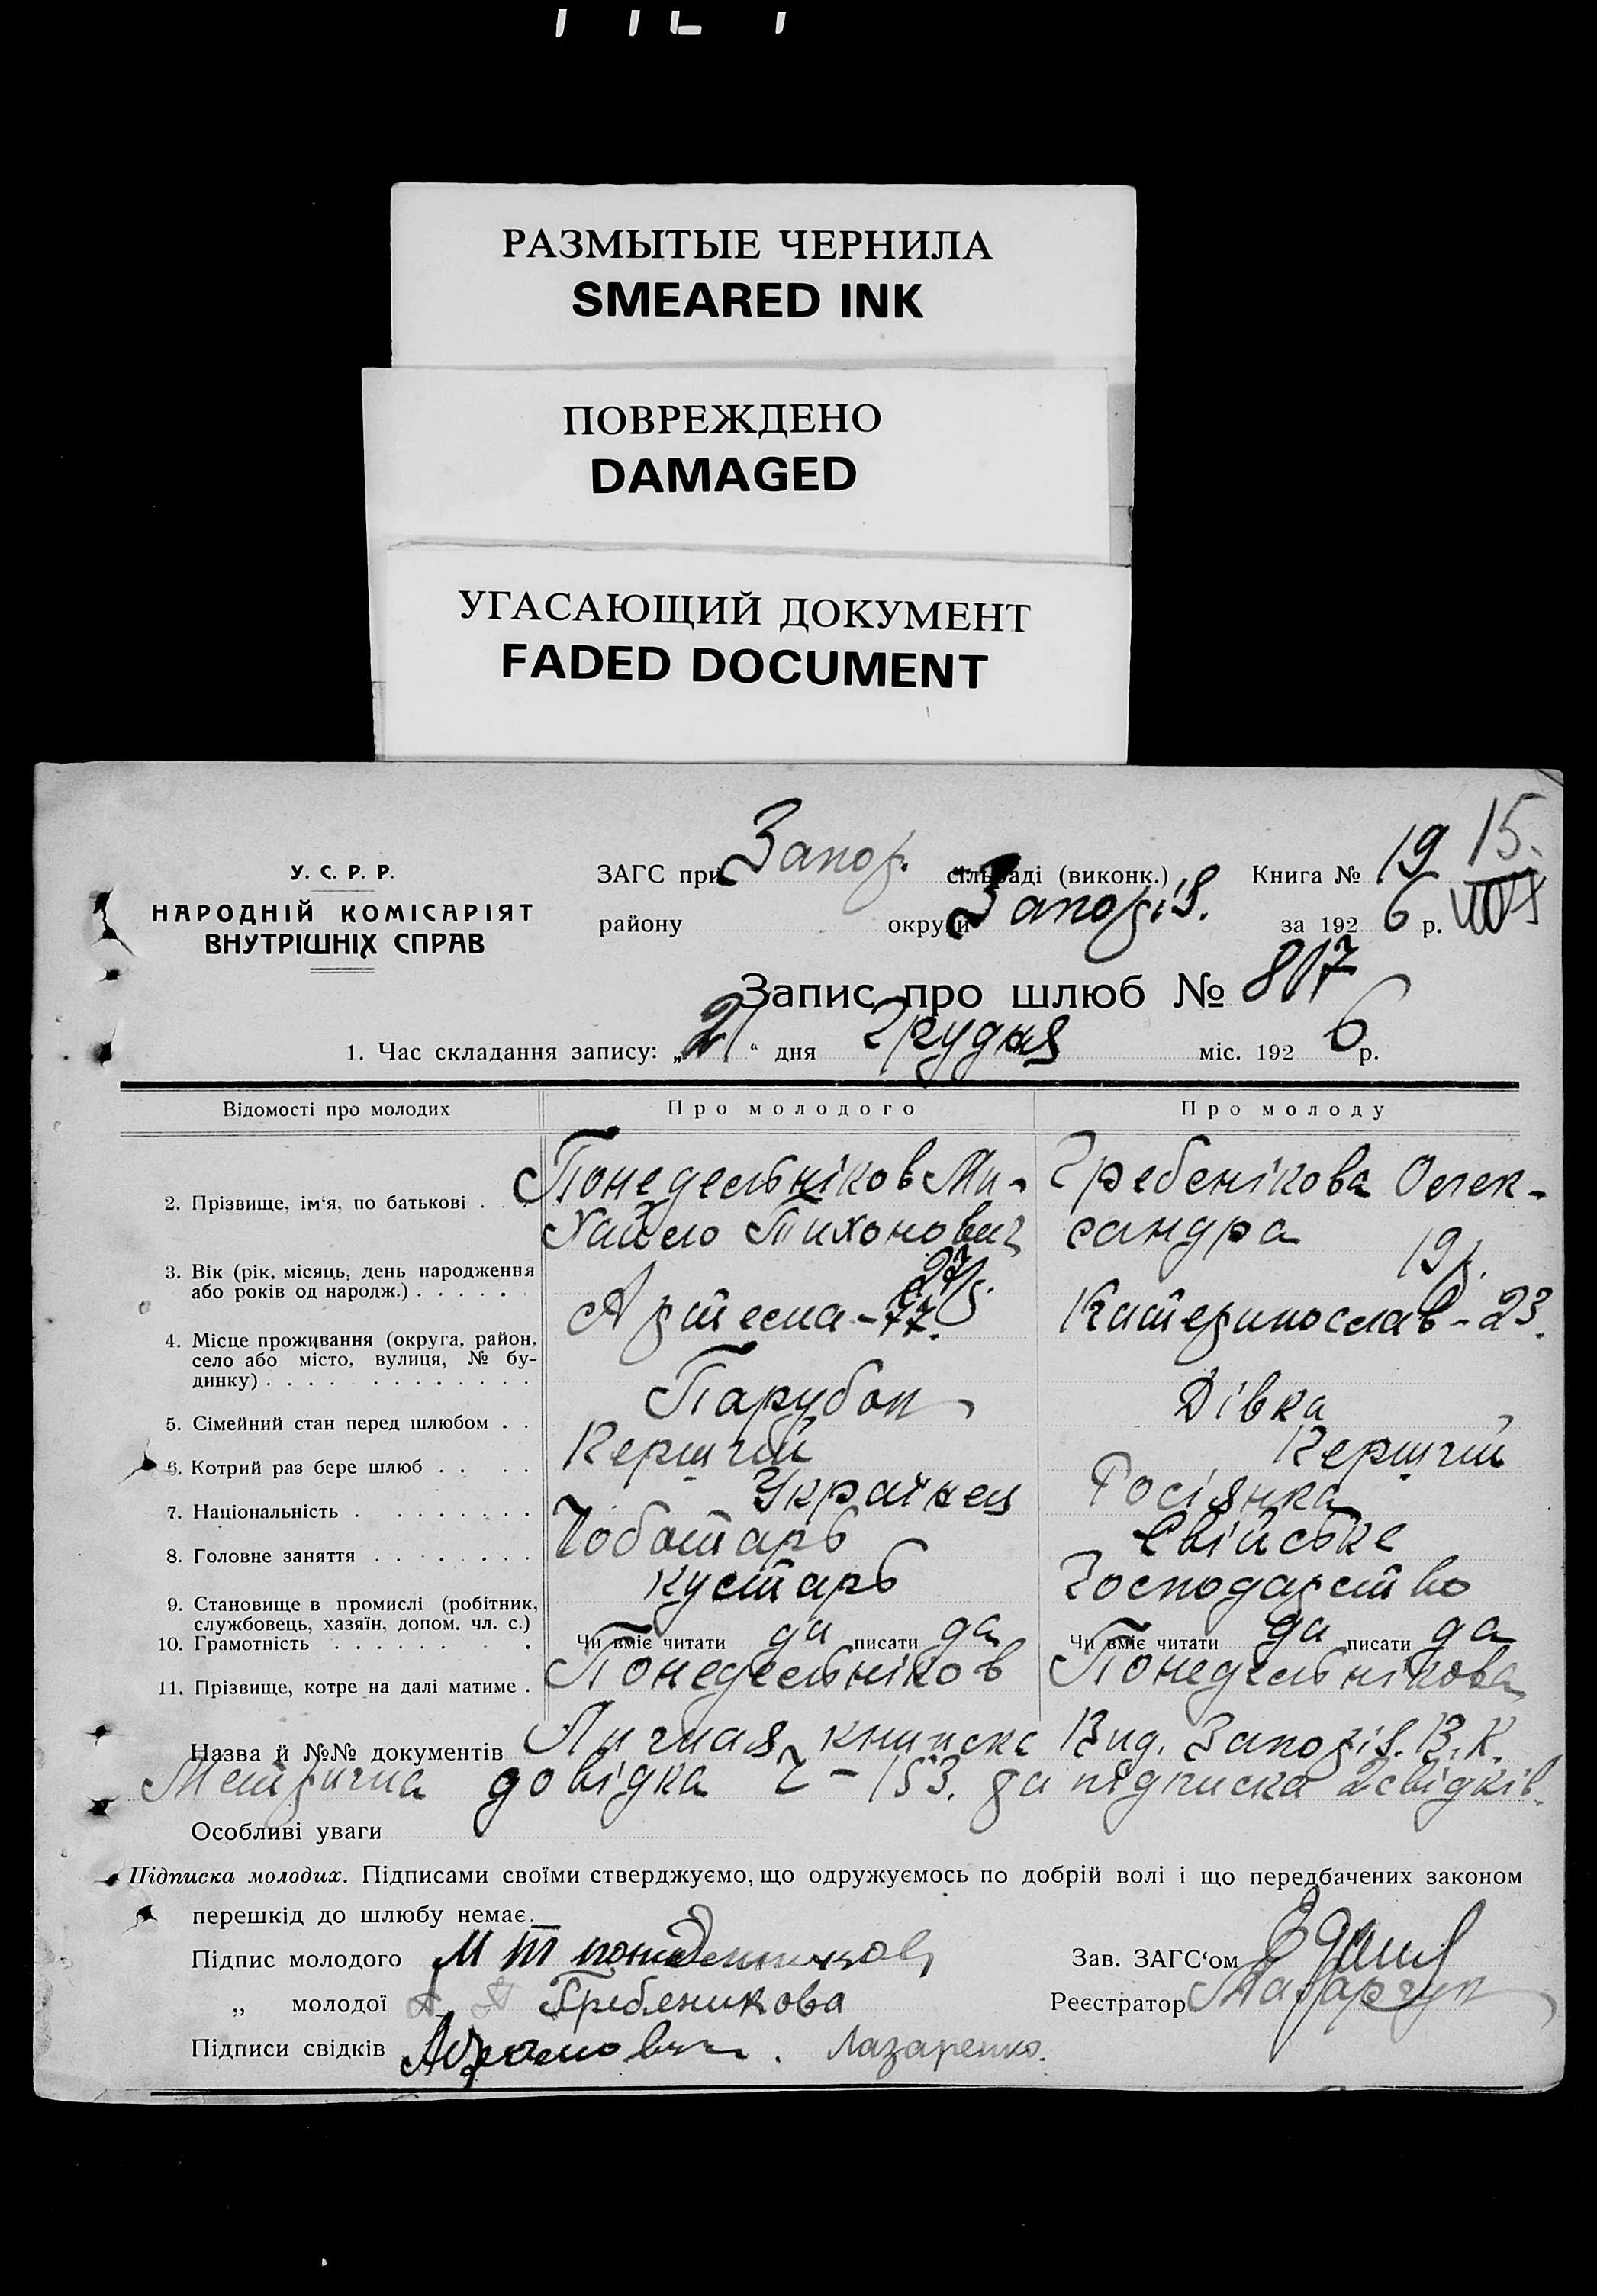 РАЗМЫТЫЕ ЧЕРНИЛА
SMEARED INK
ПОВРЕЖДЕНО
DAMAGED
УГАСАЮЩИЙ ДОКУМЕНТ
FADED DOCUMENT
15.
У. С. Р. Р.
НАРОДНІЙ КОМІСАРІЯТ
ВНУТРІШНІХ СПРАВ
ЗАГС при Запор. сільраді (виконк.) Книга № 19
району округи Запоріз. за 1926 р.
Запис про шлюб № 817
1. Час складання запису: „21“ дня грудня міс. 1926 р.
Відомості про молодих Про молодого Про молоду
2. Прізвище, ім‘я, по батькові . . . Понедельніков Ми- Гребенікова Олек-
хайло Тихонович сандра
3. Вік (рік, місяць, день народження 27р. 19р.
або років од народж.) . . . . . .
4. Місце проживання (округа, район, Артема - 77. Катеринослав - 23.
село або місто, вулиця, № бу-
динку) . . . . . . . . . . . . .
5. Сімейний стан перед шлюбом . . Парубок Дівка
6. Котрий раз бере шлюб . . . . Перший Перший
7. Національність . . . . . . . . Українец Росіянка
8. Головне заняття . . . . . . . . Чоботарь Свійське
9. Становище в промислі (робітник, кустарь Господарство
службовець, хазяїн, допом. чл. с.)
10. Грамотність . . . . . . . . Чи вміє читати да писати да Чи вміє читати да писати да
11. Прізвище, котре на далі матиме . Понедельніков Понедельнікова
Назва й №№ документів Личная книжка Вид. Запоріз. В.К.
Метрична довідка Ч - 153. да підписка 2 свідків.
Особливі уваги
Підписка молодих. Підписами своїми стверджуємо, що одружуємось по добрій волі і що передбачених законом
перешкід до шлюбу немає.
Підпис молодого М Т Зав. ЗАГС‘ом
„ молодої Гребленикова Реєстратор
Підписи свідків Лазаренко.